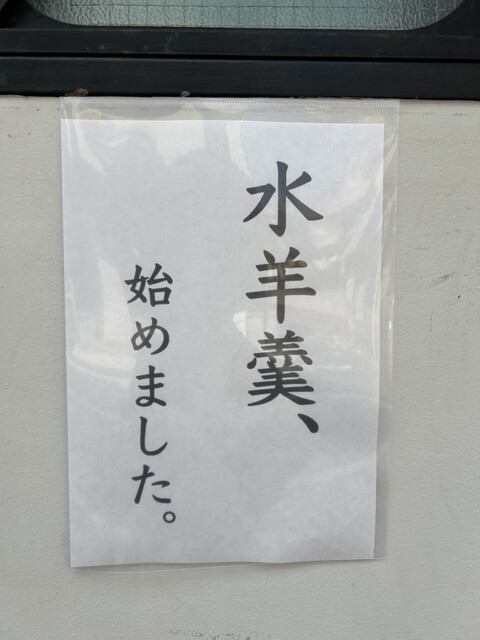 水羊羹、
始めました。